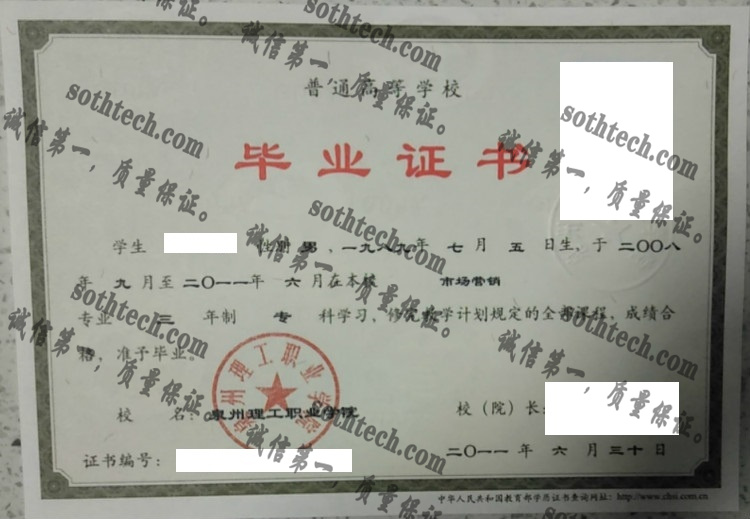 普通高等学校
毕业证书
学生 性别 男，一九八九年 七 月 五 日生，于 二〇〇八
年 九 月至 二〇一一年 六 月在本校 市场营销
专业 三 年制 专 科学习，修完教学计划规定的全部课程，成绩合
格，准予毕业。
校 名：泉州理工职业学院 校（院）长：
证书编号： 二〇一一 年 六 月 三十 日
中华人民共和国教育部学历证书查询网址：http://www.chsi.com.cn
泉州理工职业学院
sothtech.com
诚信第一，质量保证。
sothtech.com
诚信第一，质量保证。
sothtech.com
诚信第一，质量保证。
sothtech.com
诚信第一，质量保证。
sothtech.com
诚信第一，质量保证。
sothtech.com
诚信第一，质量保证。
sothtech.com
诚信第一，质量保证。